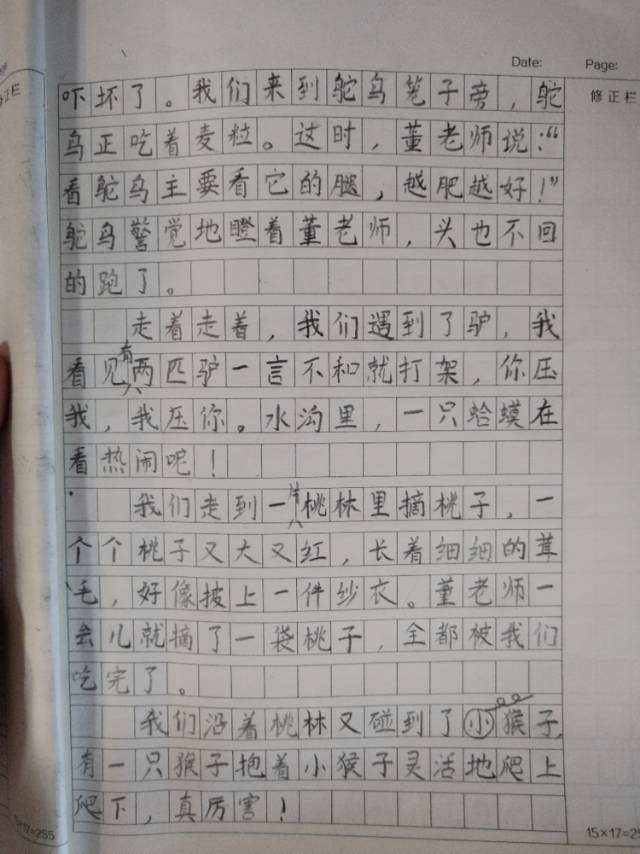 Date: Page:
修正栏
吓坏了。我们来到鸵鸟笼子旁，鸵
鸟正吃着麦粒。过时，董老师说：“
看鸵鸟主要看它的腿，越肥越好！”
鸵鸟警觉地瞪着董老师，头也不回
的跑了。
走着走着，我们遇到了驴，我
看见有两匹驴一言不和就打架，你压
我，我压你。水沟里，一只蛤蟆在
看热闹呢！
我们走到一片桃林里摘桃子，一
个个桃子又大又红，长着细细的茸
毛，好像披上一件纱衣。董老师一
会儿就摘了一袋桃子，全都被我们
吃完了。
我们沿着桃林又碰到了小猴子，
有一只猴子抱着小猴子灵活地爬上
爬下，真厉害！
15×17=255